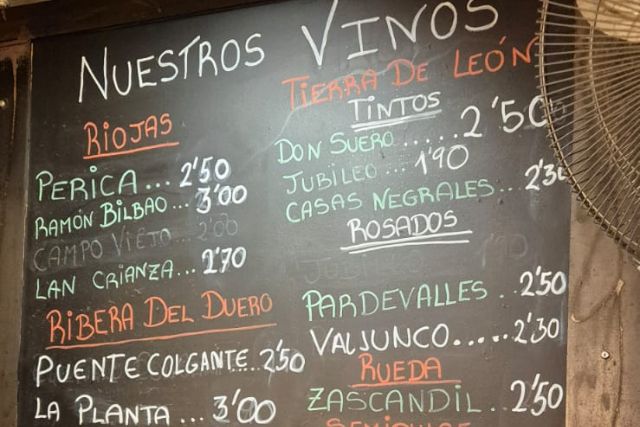 NUESTROS VINOS
RIOJAS
PERICA... 2'50
RAMÓN BILBAO... 3'00
CAMPO VIEJO... 2'00
LAN CRIANZA... 2'70
RIBERA DEL DUERO
PUENTE COLGANTE... 2'50
LA PLANTA... 3'00
TIERRA DE LEÓN
TINTOS
DON SUERO...... 2'50
JUBILEO... 1'90
CASAS NEGRALES.. 2'30
ROSADOS
PARDEVALLES.. 2'50
VALJUNCO..... 2'30
RUEDA
ZASCANDIL.. 2'50